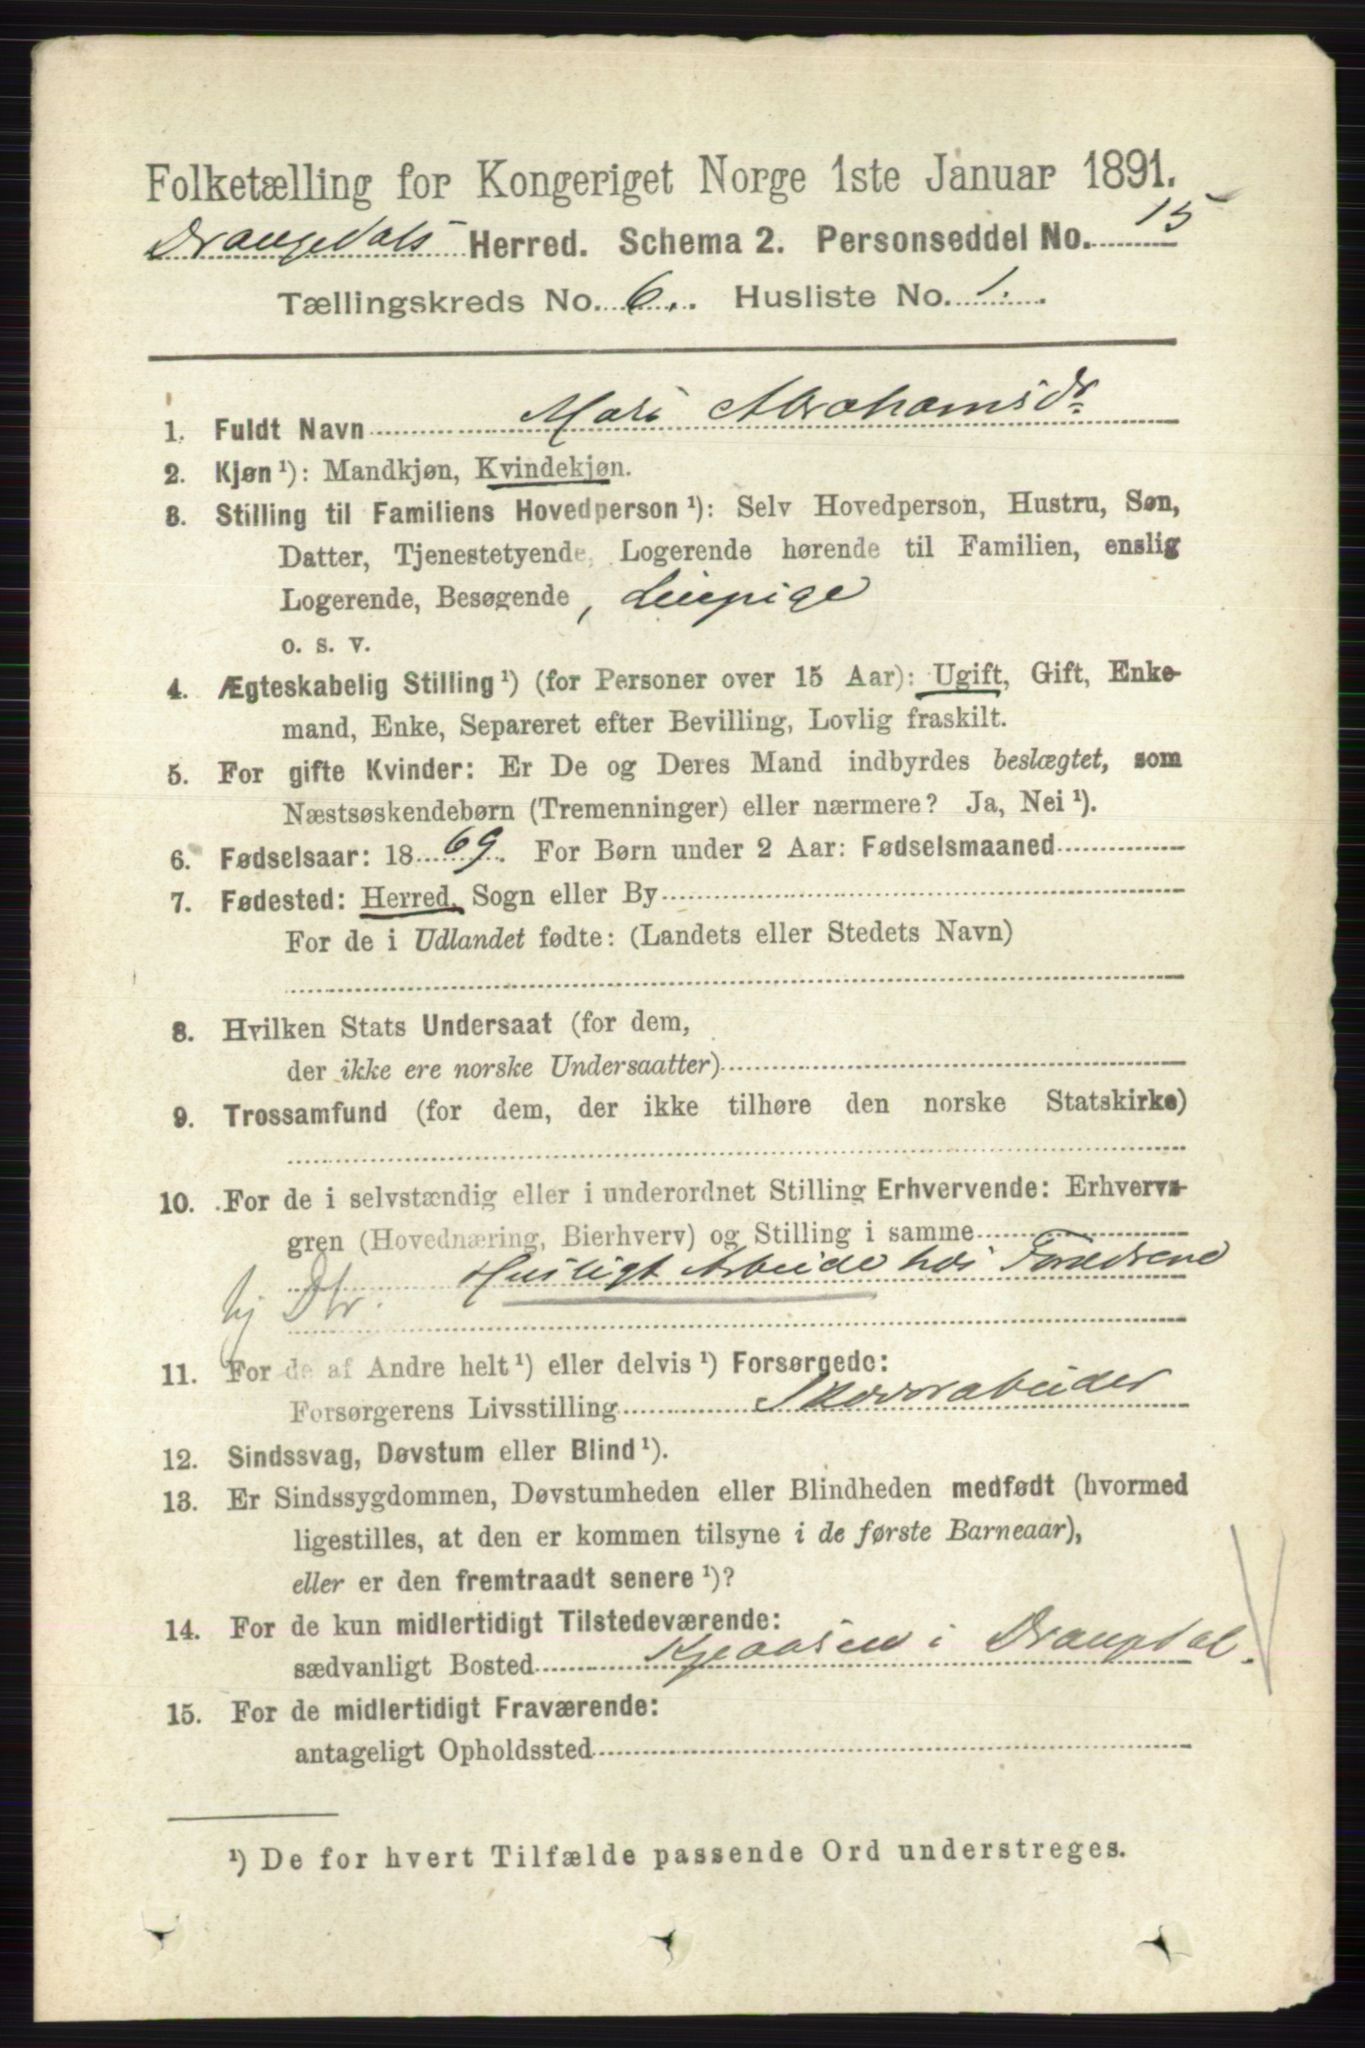 Folketælling for Kongeriget Norge 1ste Januar 1891.
Drangedals Herred. Schema 2. Personseddel No. 15
Tællingskreds No. 6. Husliste No. 1.
1. Fuldt Navn Mari Abrahamsdr
2. Kjøn ¹): Mandkjøn, Kvindekjøn.
3. Stilling til Familiens Hovedperson ¹): Selv Hovedperson, Hustru, Søn,
Datter, Tjenestetyende, Logerende hørende til Familien, enslig
Logerende, Besøgende, Leiepige
o. s. v.
4. Ægteskabelig Stilling ¹) (for Personer over 15 Aar): Ugift, Gift, Enke-
mand, Enke, Separeret efter Bevilling, Lovlig fraskilt.
5. For gifte Kvinder: Er De og Deres Mand indbyrdes beslægtet, som
Næstsøskendebørn (Tremenninger) eller nærmere? Ja, Nei ¹).
6. Fødselsaar: 1869. For Børn under 2 Aar: Fødselsmaaned
7. Fødested: Herred, Sogn eller By
For de i Udlandet fødte: (Landets eller Stedets Navn)
8. Hvilken Stats Undersaat (for dem,
der ikke ere norske Undersaatter)
9. Trossamfund (for dem, der ikke tilhøre den norske Statskirke)
10. For de i selvstændig eller i underordnet Stilling Erhvervende: Erhvervs-
gren (Hovednæring, Bierhverv) og Stilling i samme
Husligt Arbeide hos Forældrene
hj Dtr.
11. For de af Andre helt ¹) eller delvis ¹) Forsørgede:
Forsørgerens Livsstilling Skovarabeider
12. Sindssvag, Døvstum eller Blind ¹).
13. Er Sindssygdommen, Døvstumheden eller Blindheden medfødt (hvormed
ligestilles, at den er kommen tilsyne i de første Barneaar),
eller er den fremtraadt senere ¹)?
14. For de kun midlertidigt Tilstedeværende:
sædvanligt Bosted Kjeaasen i Drangdal.
15. For de midlertidigt Fraværende:
antageligt Opholdssted
¹) De for hvert Tilfælde passende Ord understreges.